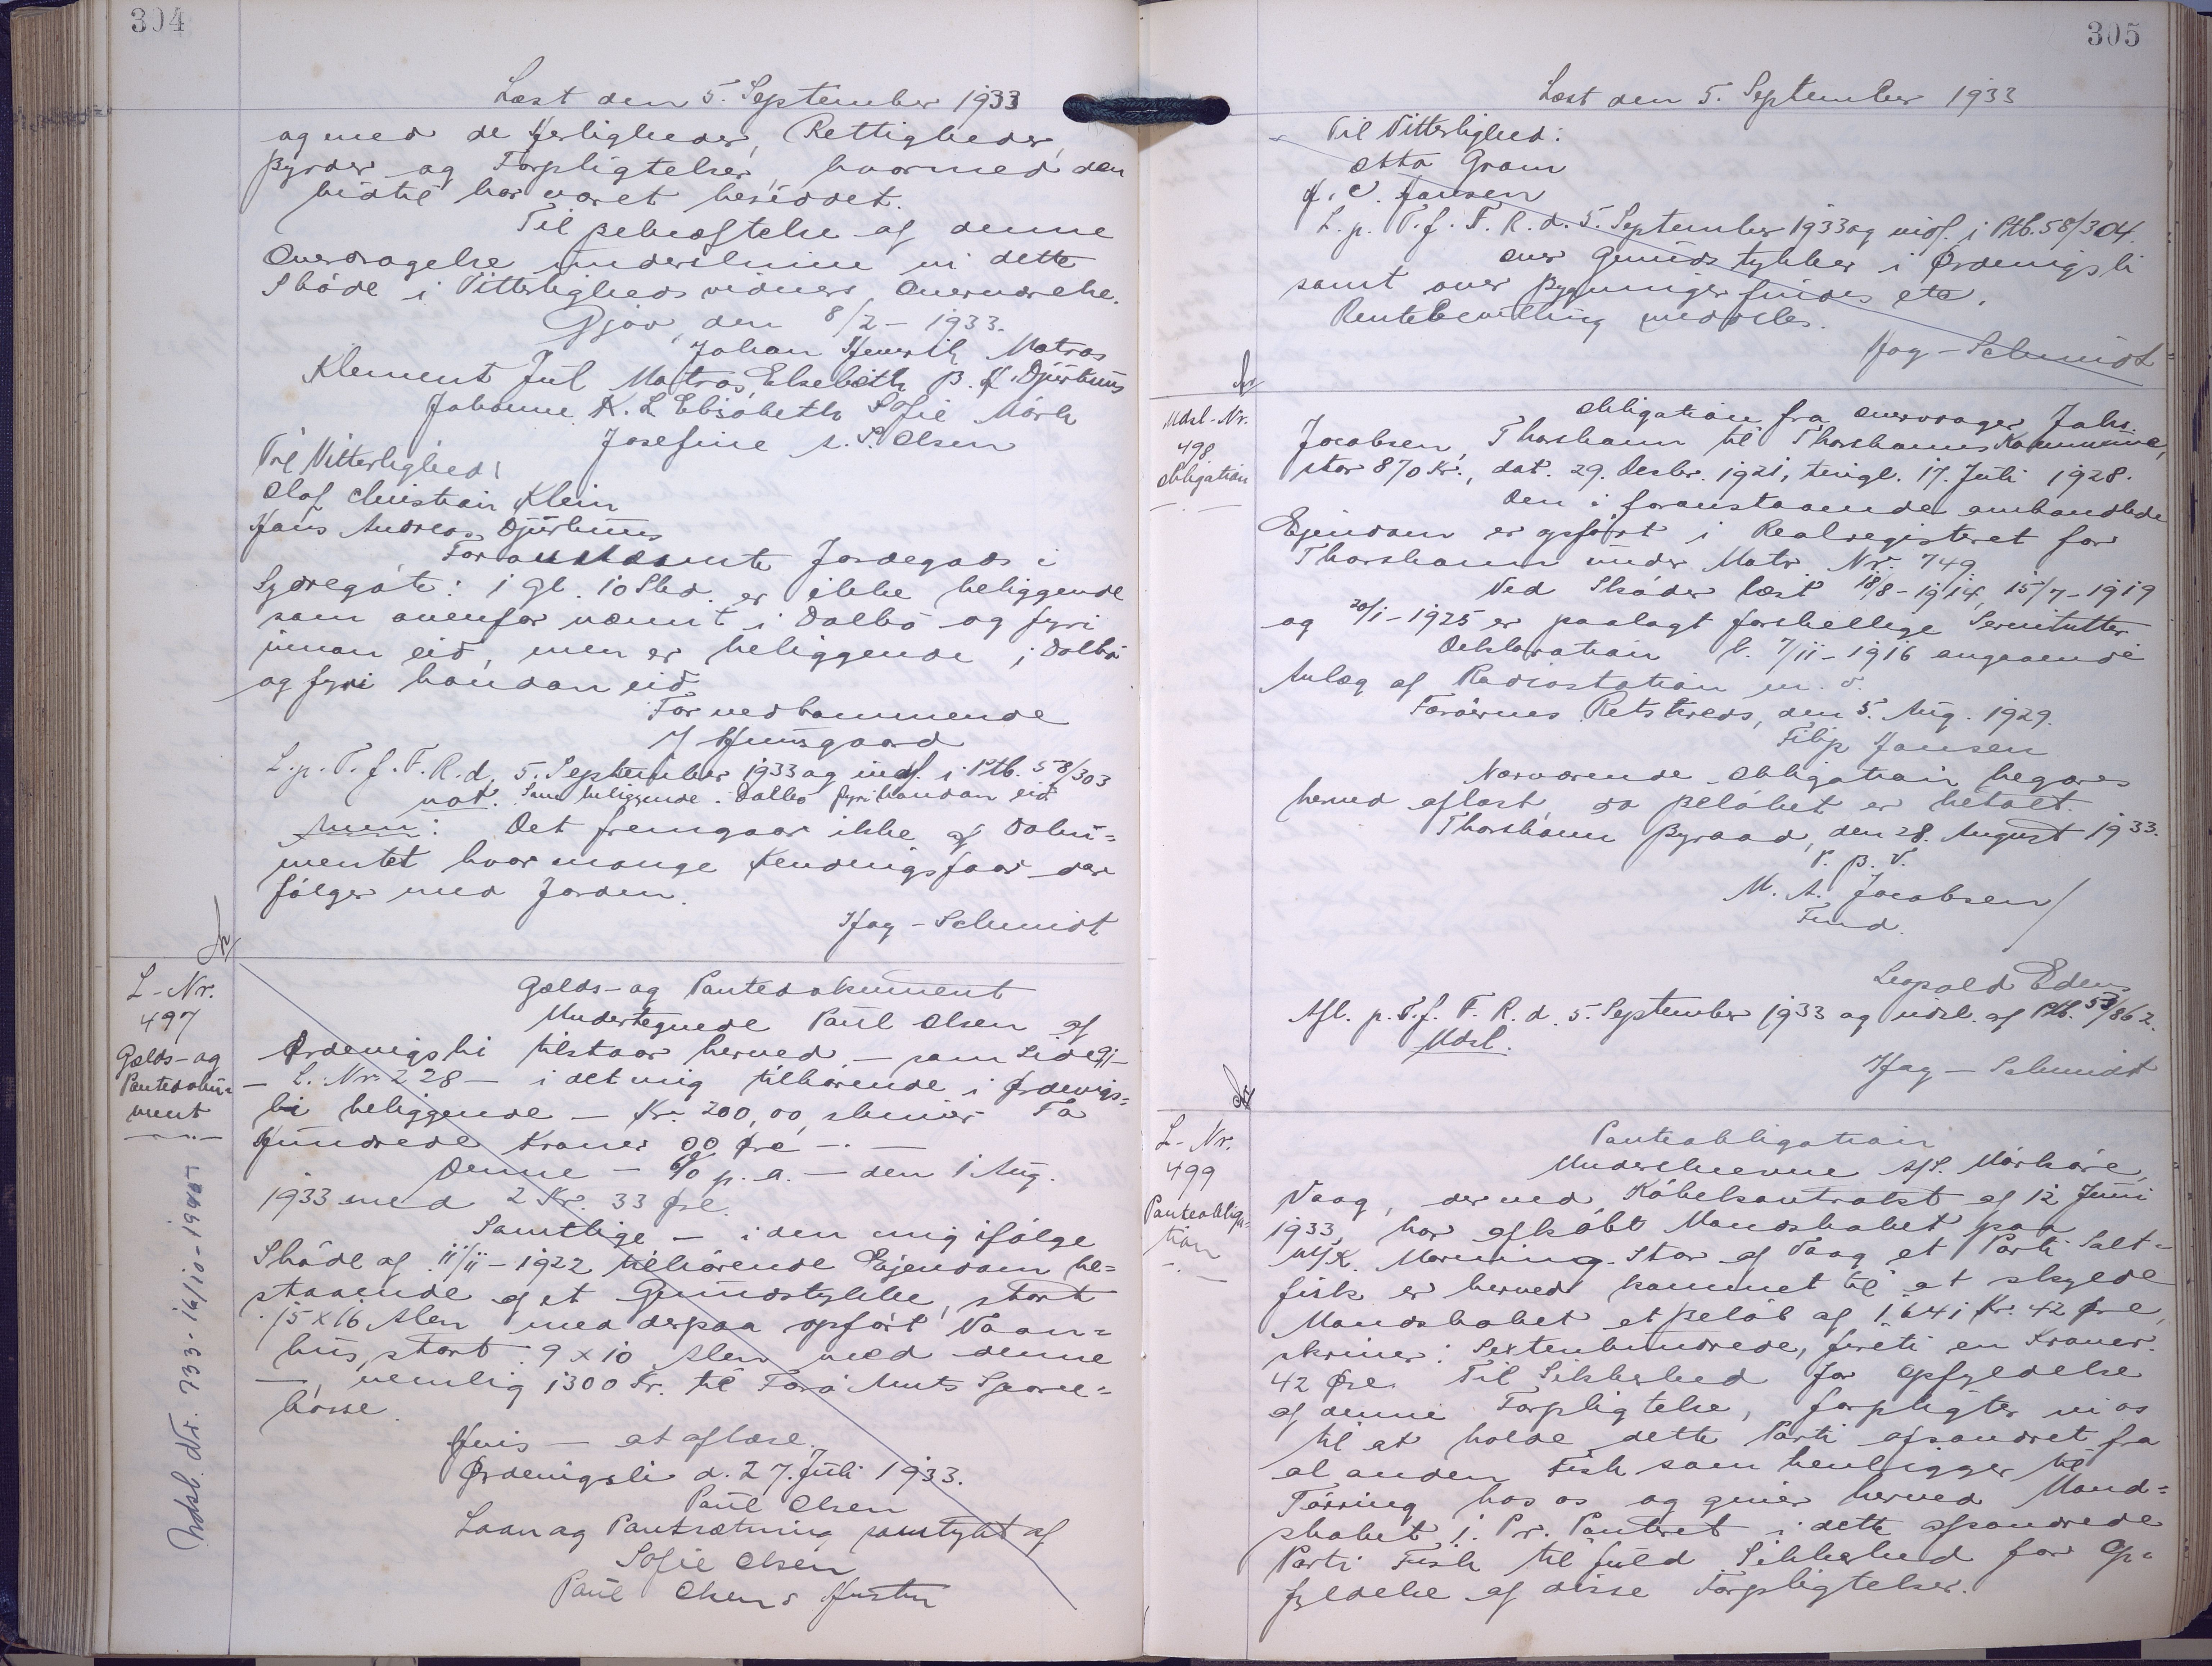 304
Læst den 5. September 1933
og med de Herligheder, Rettigheder,
Byrder og Forpligtelser, hvormed den
hidtil har været besiddet.
Til Bekræftelse af denne
Overdragelse underskrive vi dette
Skøde i Vitterlighedsvidners Overværelse.
Gjov, den 8/2 - 1933.
Johan Henrik Matras
Klement Jul Matras, Elsebeth B. K. Djurhuus
Johanne K. L. Elisabeth Sofie Mørk
Josefine s. P. Olsen
Til Vitterlighed:
Olof Christian Klein
Hans Andreas Djurhuus
Foranstaaende Jordegods i
Syđregøte: 1 Gl. 10 Skd. er ikke beliggende
som ovenfor nævnt i Dalbø og fyri
innan eid, men er beliggende i Dalbø
og fyri handan eid.
For vedkommende
J Hunsgaard
L. p. T. f. F. R. d. 5. September 1933 og indf. i Ptb. 58/303
not. som beliggende i Dalbø fyri handan eid.
Anm: Det fremgaar ikke af Doku=
mentet hvor mange Kendingsfaar der
følger med Jorden.
Hay-Schmidt
L-Nr.
497
Gælds- og
Pantedoku=
ment
Gælds- og Pantedokument
Undertegnede Paul Olsen af
Ørdevigsli tilstaar herved - som Lideg
- L. Nr. 228 - i det mig tilhørende i Ørdevigs=
li beliggende - Kr. 200,00, skriver To
Hundrede Kroner 00 Øre -
Denne - 6% p. a. - den 1 Aug.
1933 med 2 Kr. 33 Øre.
Samtlige - i den mig ifølge
Skøde af 11/11 - 1922 tilhørende Ejendom be=
staaende af et Grundstykke, stort
15 x 16 Alen med derpaa opført Vaan=
hus, stort 9 x 10 Alen med denne
-, nemlig 1300 Kr. til Færø Amts Spare=
kasse.
Hvis - at aflæse.
Ørdevigsli d. 27. Juli 1933.
Paul Olsen
Laan og Pantsætning samtykt af
Sofie Olsen
Paul Olsens Hustru
Udsl. Nr. 733 - 16/10 - 1945
305
Læst den 5. September 1933
Til Vitterlighed:
Otto Gram
H. C. Hansen
L. p. T. f. F. R. d. 5. September 1933 og indf. i Ptb. 58/304.
over Grundstykker i Ørdevigsli
samt over Bygninger findes ete.
Rentebevilling meddeles.
Hay-Schmidt
Udsl-Nr.
498
Obligation
Obligation fra Overdrager Johs.
Jacobsen, Thorshavn til Thorshavns Kommune,
stor 870 Kr., dat. 29. Decbr. 1921, tingl. 17. Juli 1928.
Den i foranstaaende omhandlede
Ejendom er opført i Realregisteret for
Thorshavn under Matr. Nr. 749
Ved Skøder læst 18/8 - 1914, 15/7 - 1919
og 20/1 - 1925 er paalagt forskellige Servitutter
Deklaration l. 7/11 - 1916 angaaende
Anlæg af Radiostation m. v.
Færøernes Retskreds, den 5. Aug. 1929.
Filip Hansen
Nærværende Obligation begæres
herved aflæst, da Beløbet er betalt.
Thorshavn Byraad, den 28. August 1933.
P. B. V.
M. A. Jacobsen/
Fmd.
Leopold Eden
Afl. p. T. f. F. R. d. 5. September 1933 og udsl. af Ptb. 53/862.
Udsl.
Hay-Schmidt
L-Nr.
499
Panteobliga=
tion
Panteobligation
Underskrevne Mørkøre,
Vaag, der ved Købekontrakt af 12 Juni
1933, har afkøbt Mandskabet paa
M/K. Morning-Star af Vaag et Parti Salt=
fisk er herved kommet til at skylde
Mandskabet et Beløb af 1641 Kr. 42 Øre,
skriver: Sextenhundrede, fireti en Kroner.
42 Øre. Til Sikkerhed for Opfyldelse
af denne Forpligtelse, forpligter vi os
til at holde dette Parti afsondret fra
al anden Fisk som henligger til
Tørring hos os og giver herved Mand=
skabet 1. Pr. Panteret i dette afsondrede
Parti Fisk til fuld Sikkerhed for Op=
fyldelse af disse Forpligtelser.